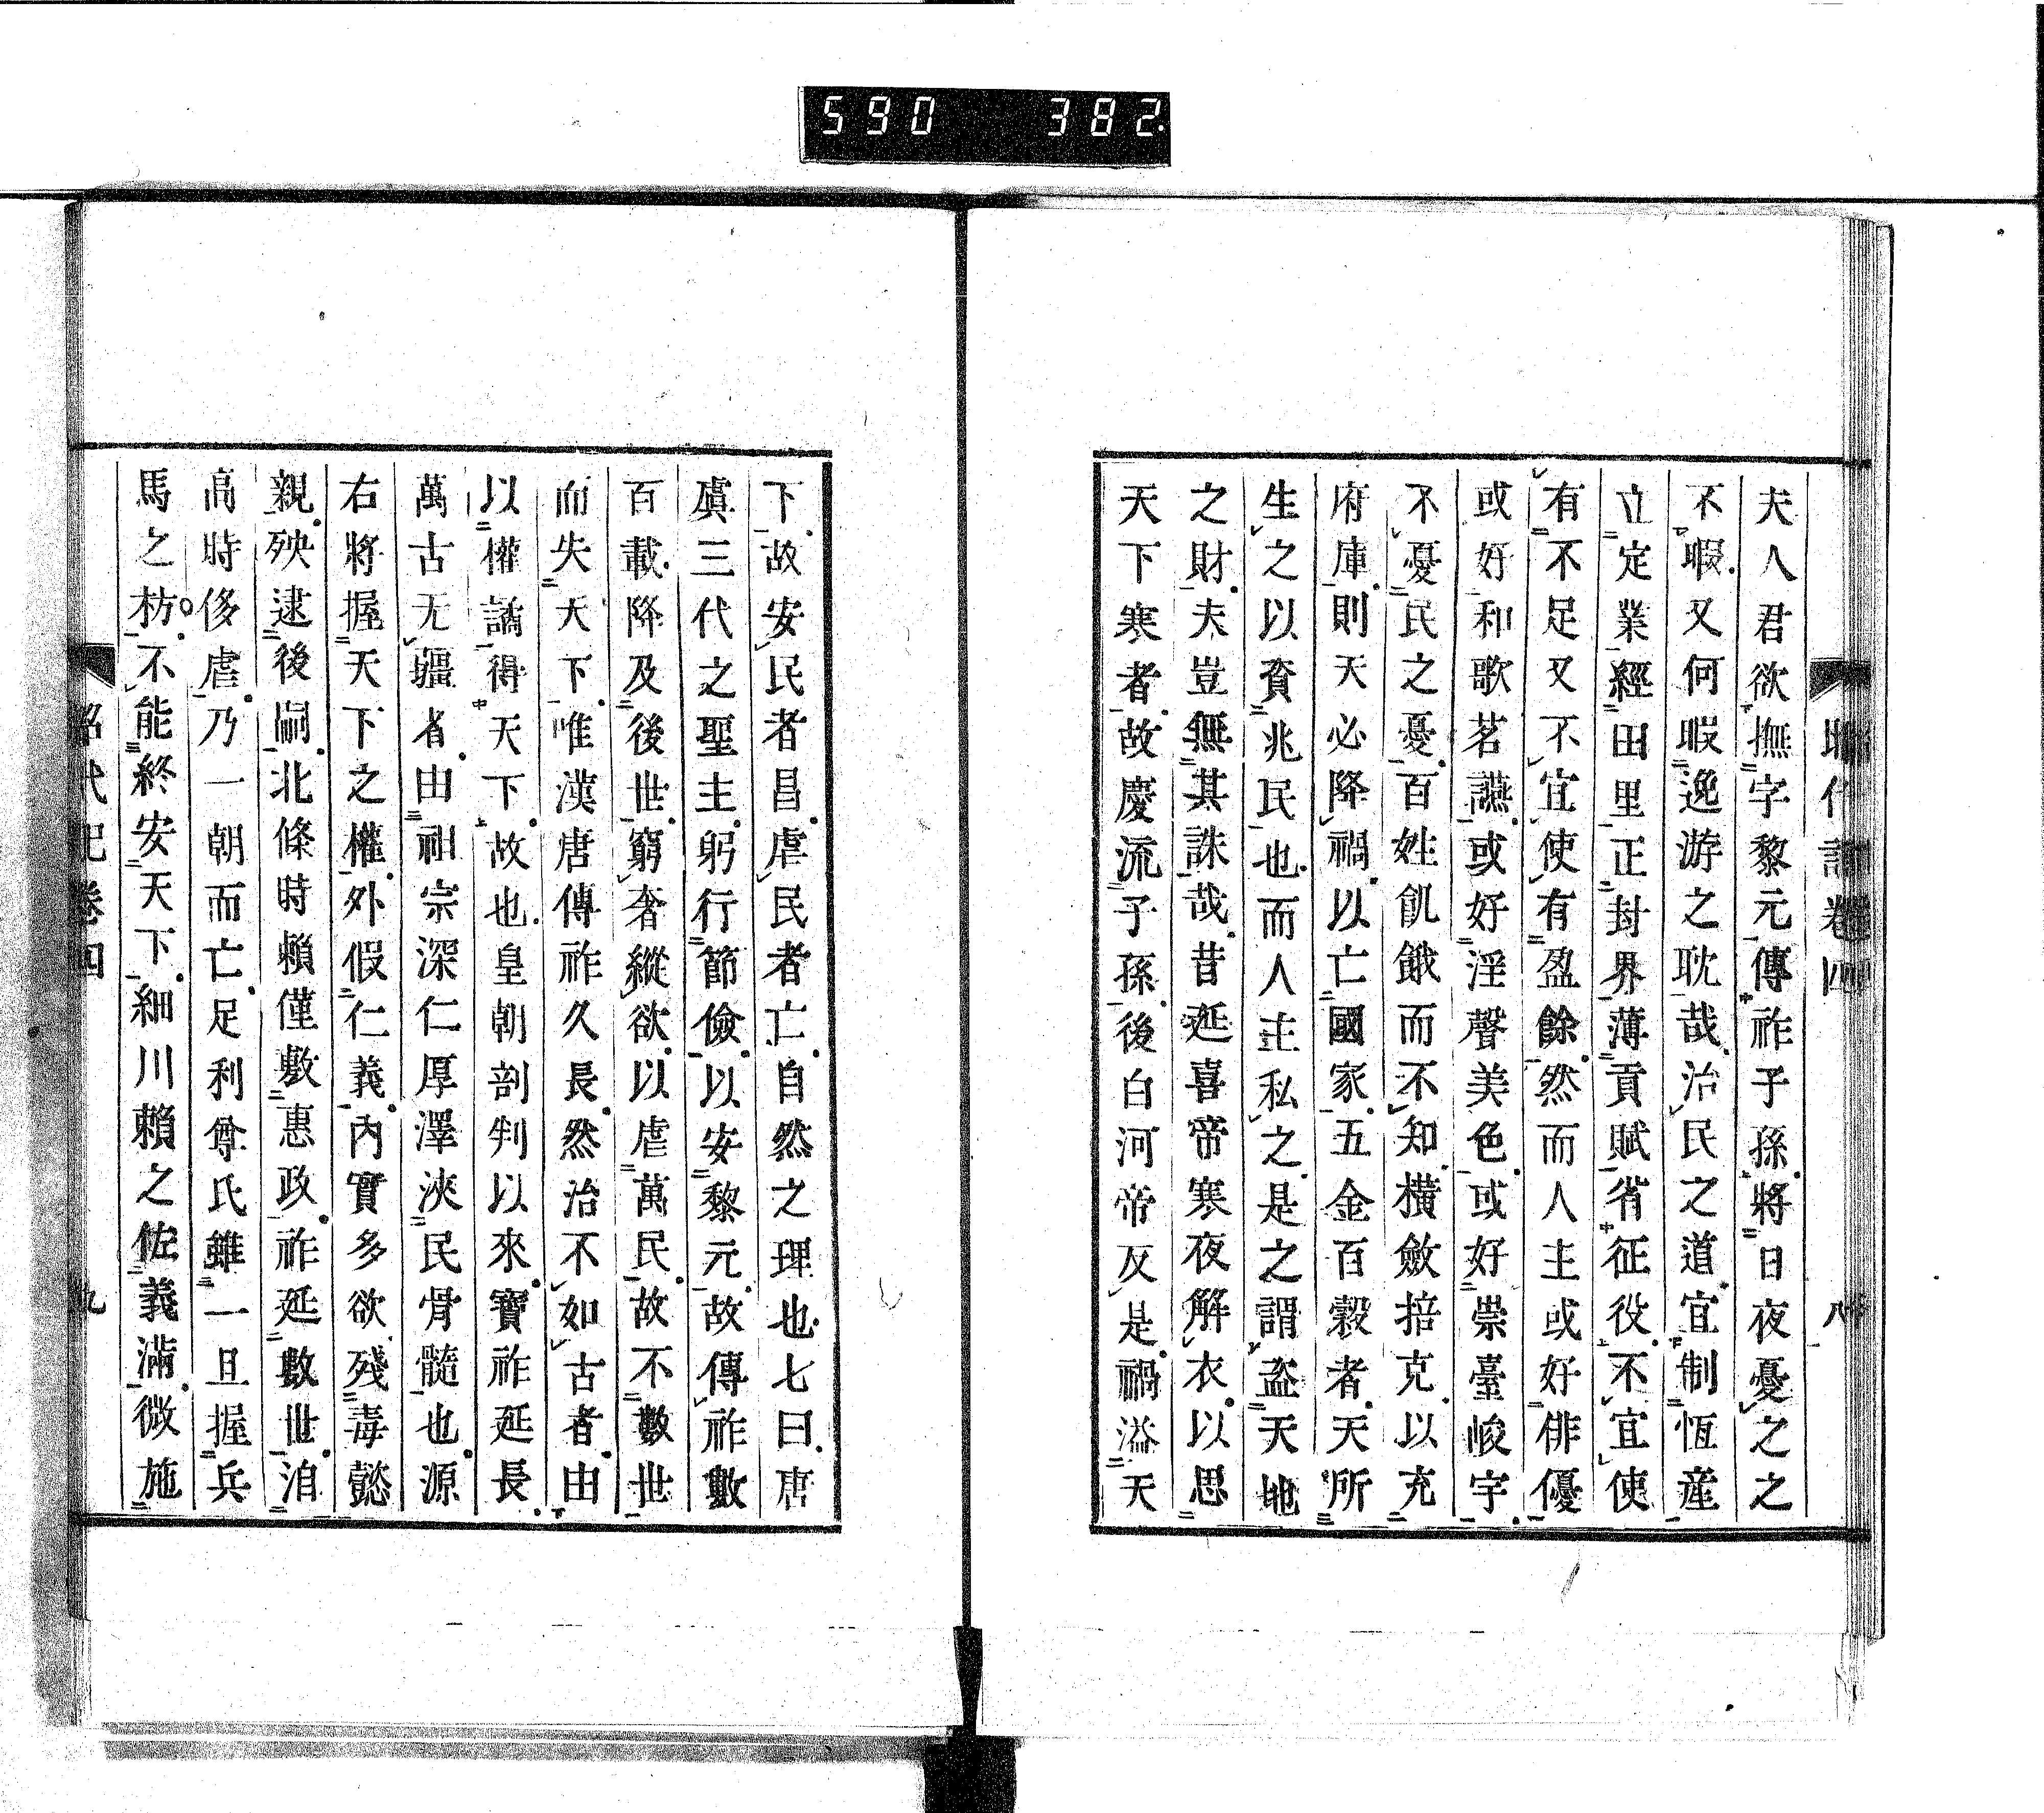 590 382
昭代記卷四 八
夫人君欲撫字黎元傳祚子孫將日夜憂之之
不暇又何暇逸游之耽哉治民之道宜制恆產
立定業經田里正封界薄貢賦省征役不宜使
有不足又不宜使有盈餘然而人主或好俳優
或好和歌茗讌或好淫聲美色或好崇臺峻宇
不憂民之憂百姓飢餓而不知橫斂掊克以充
府庫則天必降禍以亡國家五金百穀者天所
生之以資兆民也而人主私之是之謂盜天地
之財夫豈無其誅哉昔延喜帝寒夜解衣以思
天下寒者故慶流子孫後白河帝反是禍溢天
下故安民者昌虐民者亡自然之理也七曰唐
虞三代之聖主躬行節儉以安黎元故傳祚數
百載降及後世窮奢縱欲以虐萬民故不數世
而失天下唯漢唐傳祚久長然治不如古者由
以權譎得天下故也皇朝剖判以來寶祚延長
萬古无疆者由祖宗深仁厚澤浹民骨髓也源
右將握天下之權外假仁義內實多欲殘毒懿
親殃逮後嗣北條時賴僅敷惠政祚延數世洎
高時侈虐乃一朝而亡足利尊氏雖一旦握兵
馬之枋不能終安天下細川賴之佐義滿微施
昭代記卷四 九